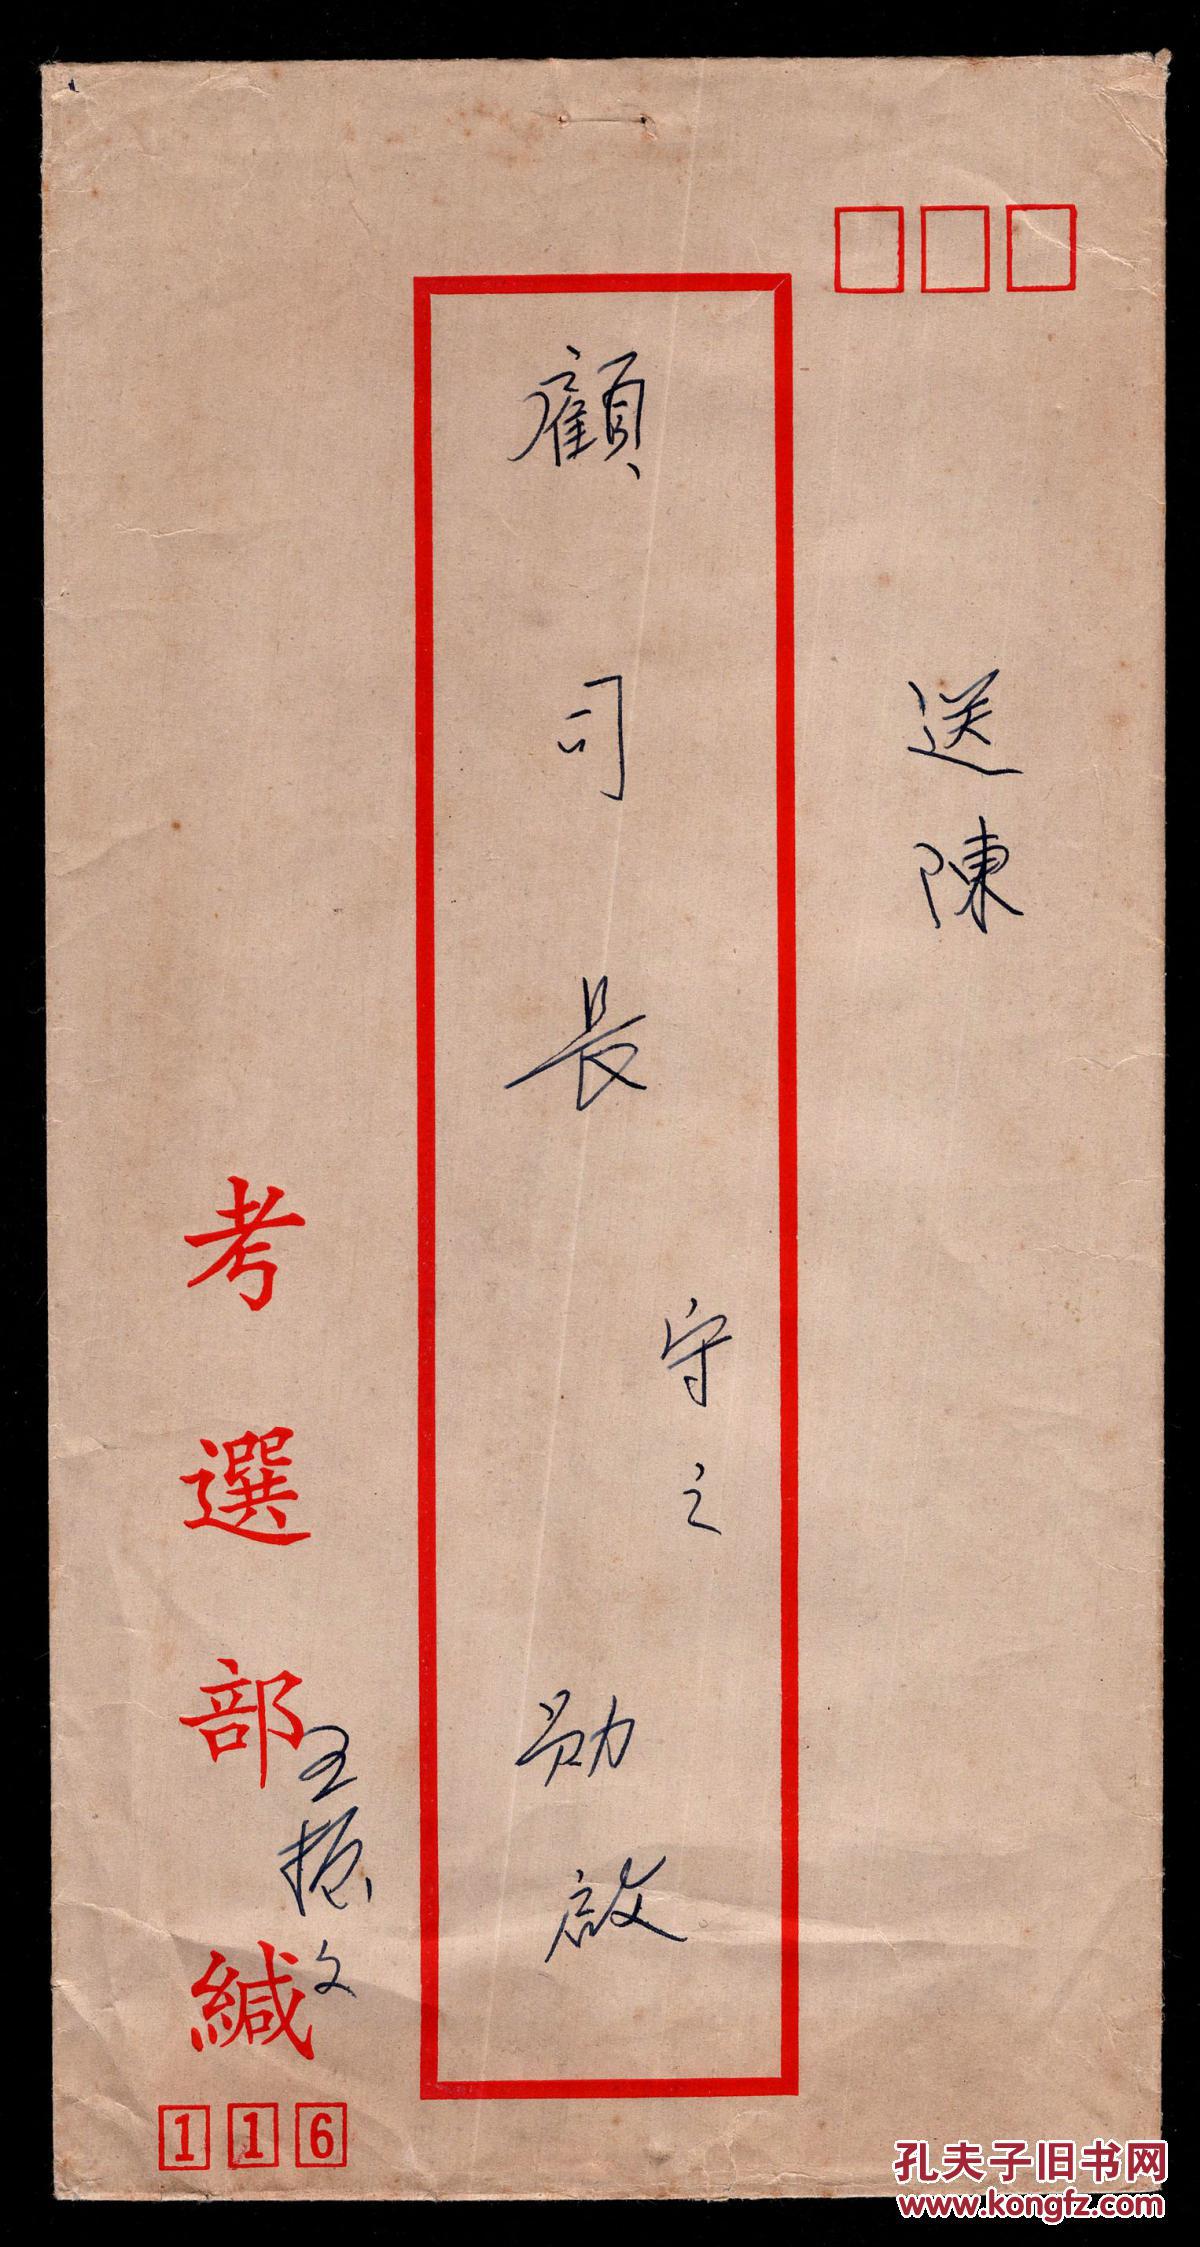 送陳
顧司長守之勛啟
考選部緘
王振文
116
孔夫子旧书网
www.kongfz.com